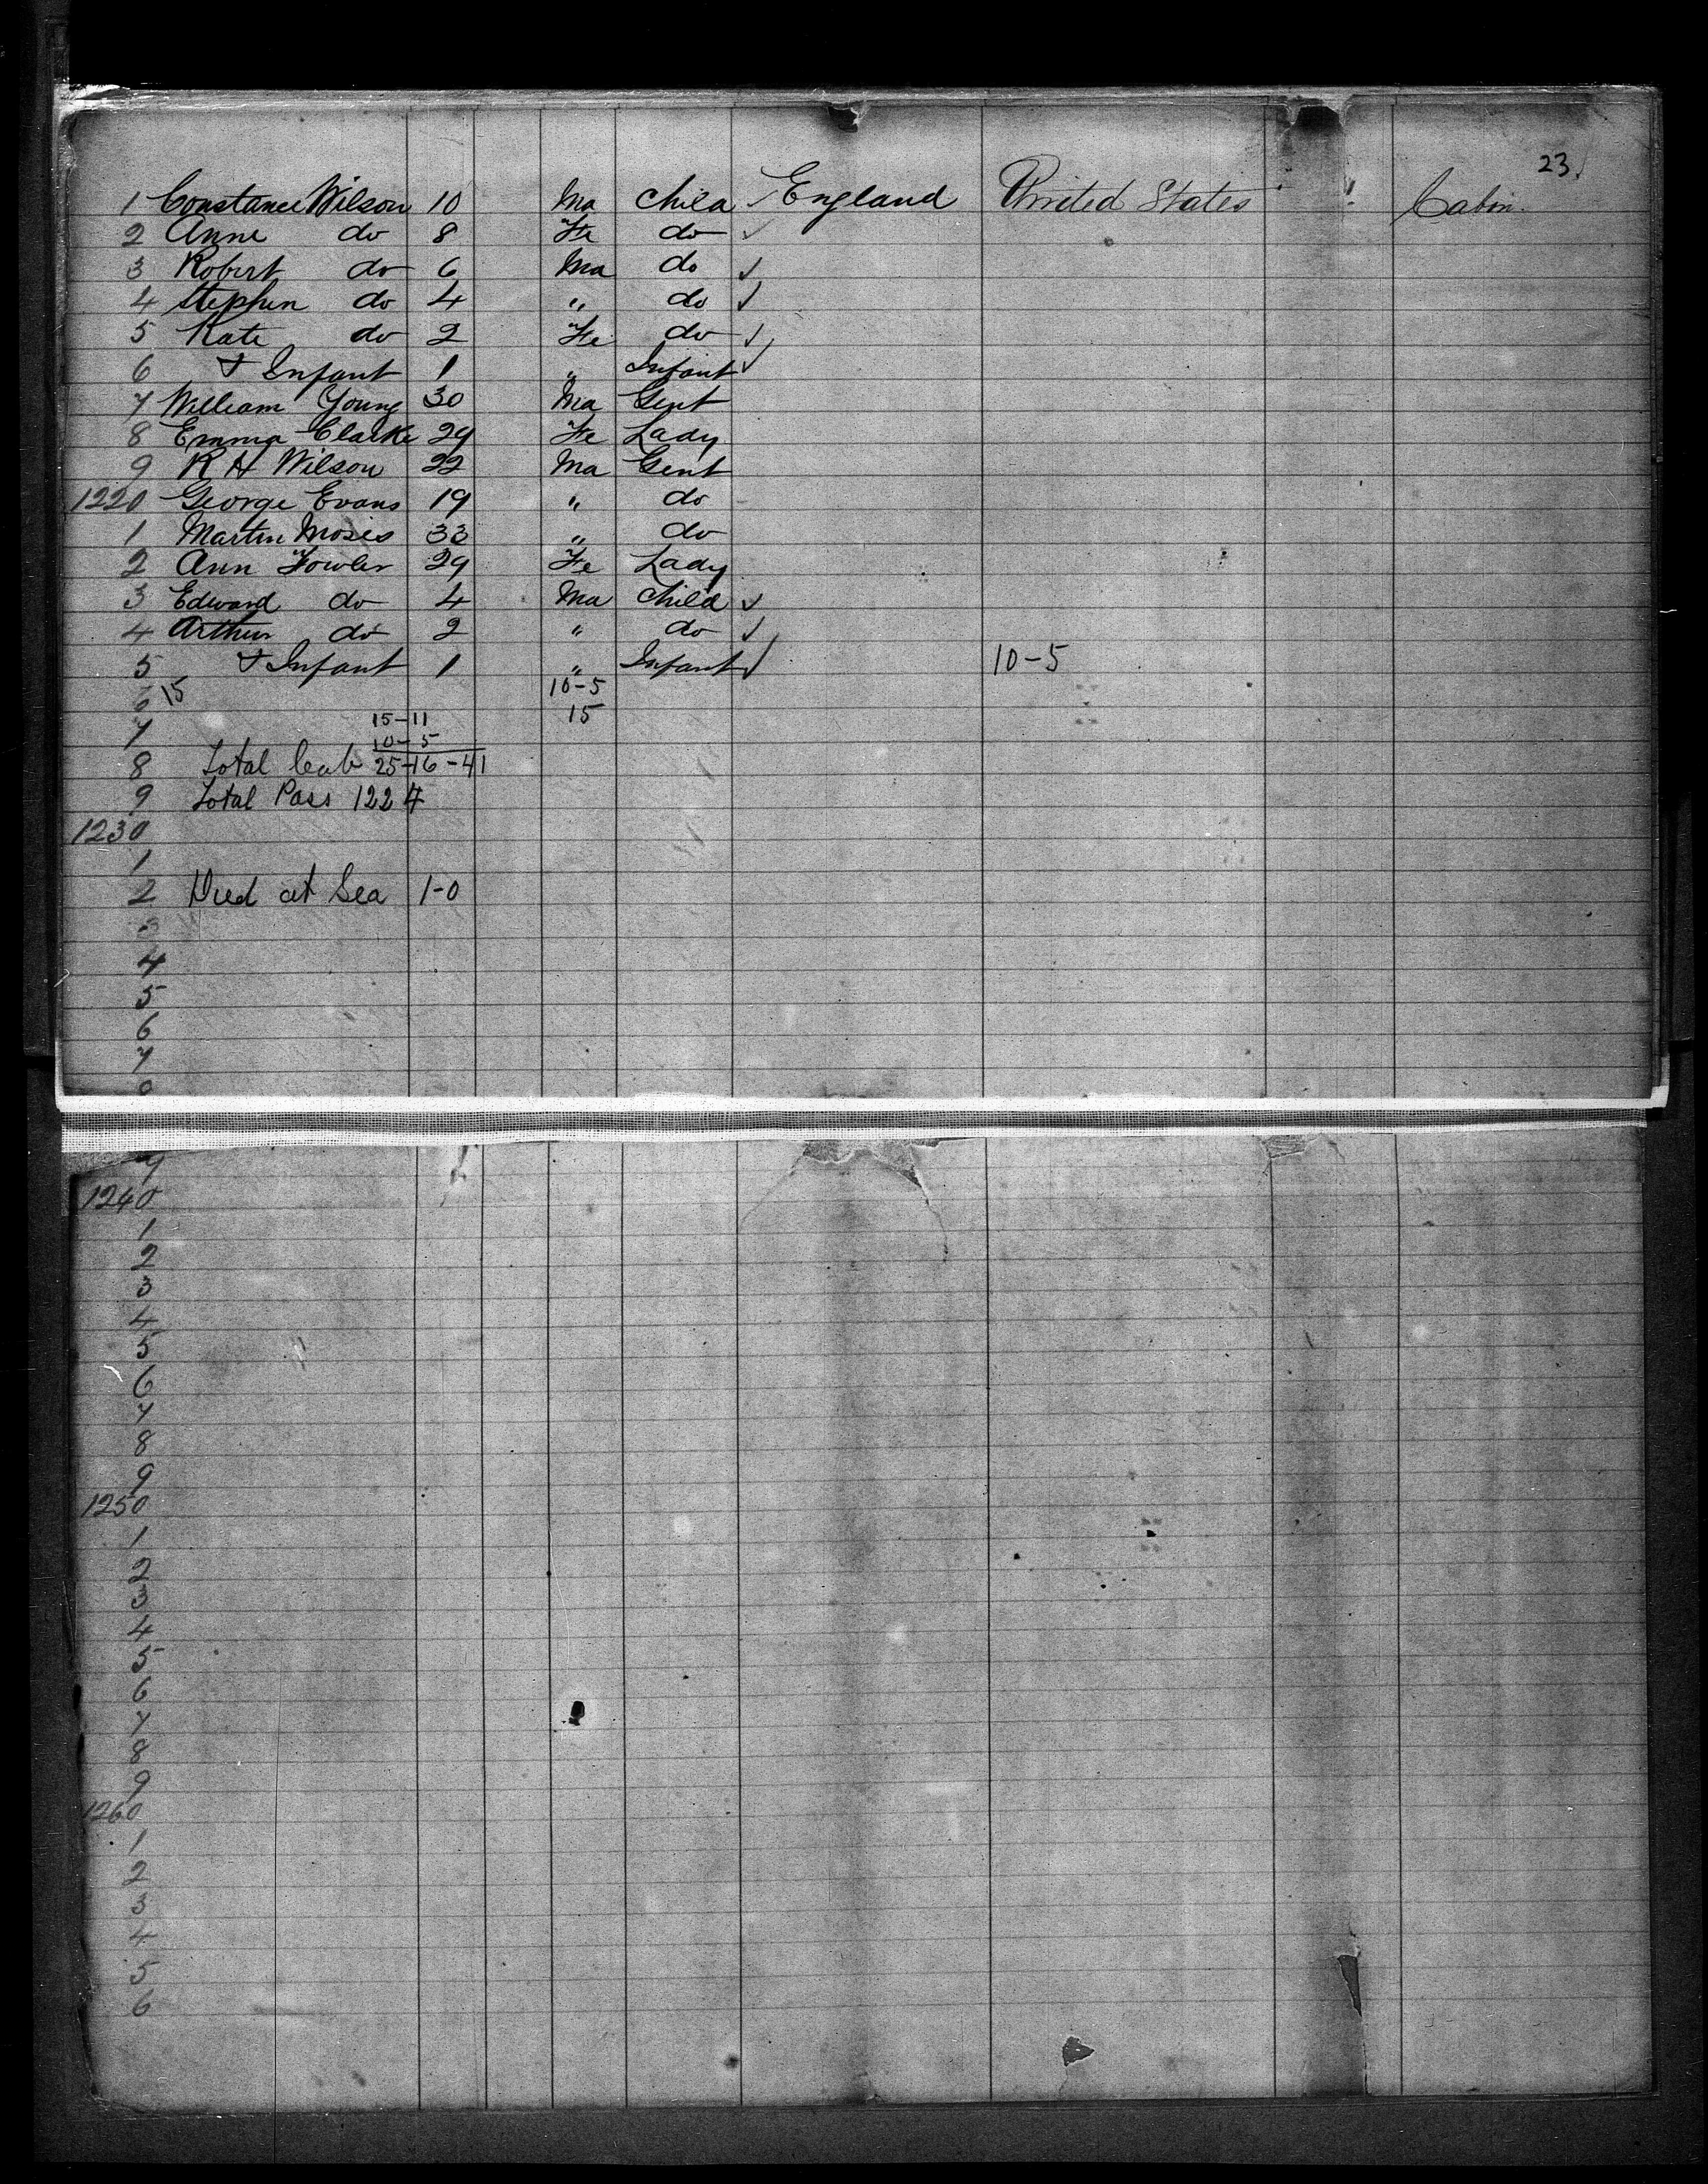 23.
1 Constance Wilson 10 Ma Child ✓ England United States " Cabin.
2 Anne do 8 Fe do ✓
3 Robert do 6 Ma do ✓
4 Stephen do 4 " do ✓
5 Kate do 2 Fe do ✓
6 & Infant 1 " Infant ✓
7 William Young 30 Ma Gent
8 Emma Clarke 29 Fe Lady
9 R H Wilson 22 Ma Gent
1220 George Evans 19 " do
1 Martin Moses 33 " do
2 Ann Fowler 29 Fe Lady
3 Edward do 4 Ma Child ✓
4 Arthur do 2 " do ✓
5 & Infant 1 " Infant ✓ 10-5
6 15 10-5
7 15-11 15
10-5
8 Total Cab 25-16-41
9 Total Pass 1224
1230
1
2 Died at Sea 1-0
3
4
5
6
7
8
9
1240
1
2
3
4
5
6
7
8
9
1250
1
2
3
4
5
6
7
8
9
1260
1
2
3
4
5
6